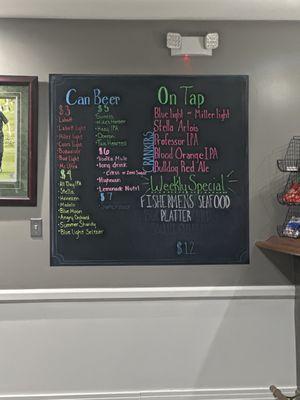 Can Beer
$3
Labatt
Labatt light
Miller light
Coors light
Budweiser
Bud light
Mic Ultra
$4
All Day IPA
Stella
Heineken
Modelo
Blue Moon
Angry Orchard
Summer Shandy
Blue Light Seltzer
$5
Hazy IPA
Two Hearted
$6
Vodka Mule
long drink
Highnoon
Lemonade Nutrl
$7
On Tap
BANKERS
Blue light - Miller light
Stella Artois
Professor IPA
Blood Orange IPA
Bulldog Red Ale
Weekly Special
FISHERMENS SEAFOOD
PLATTER
$12